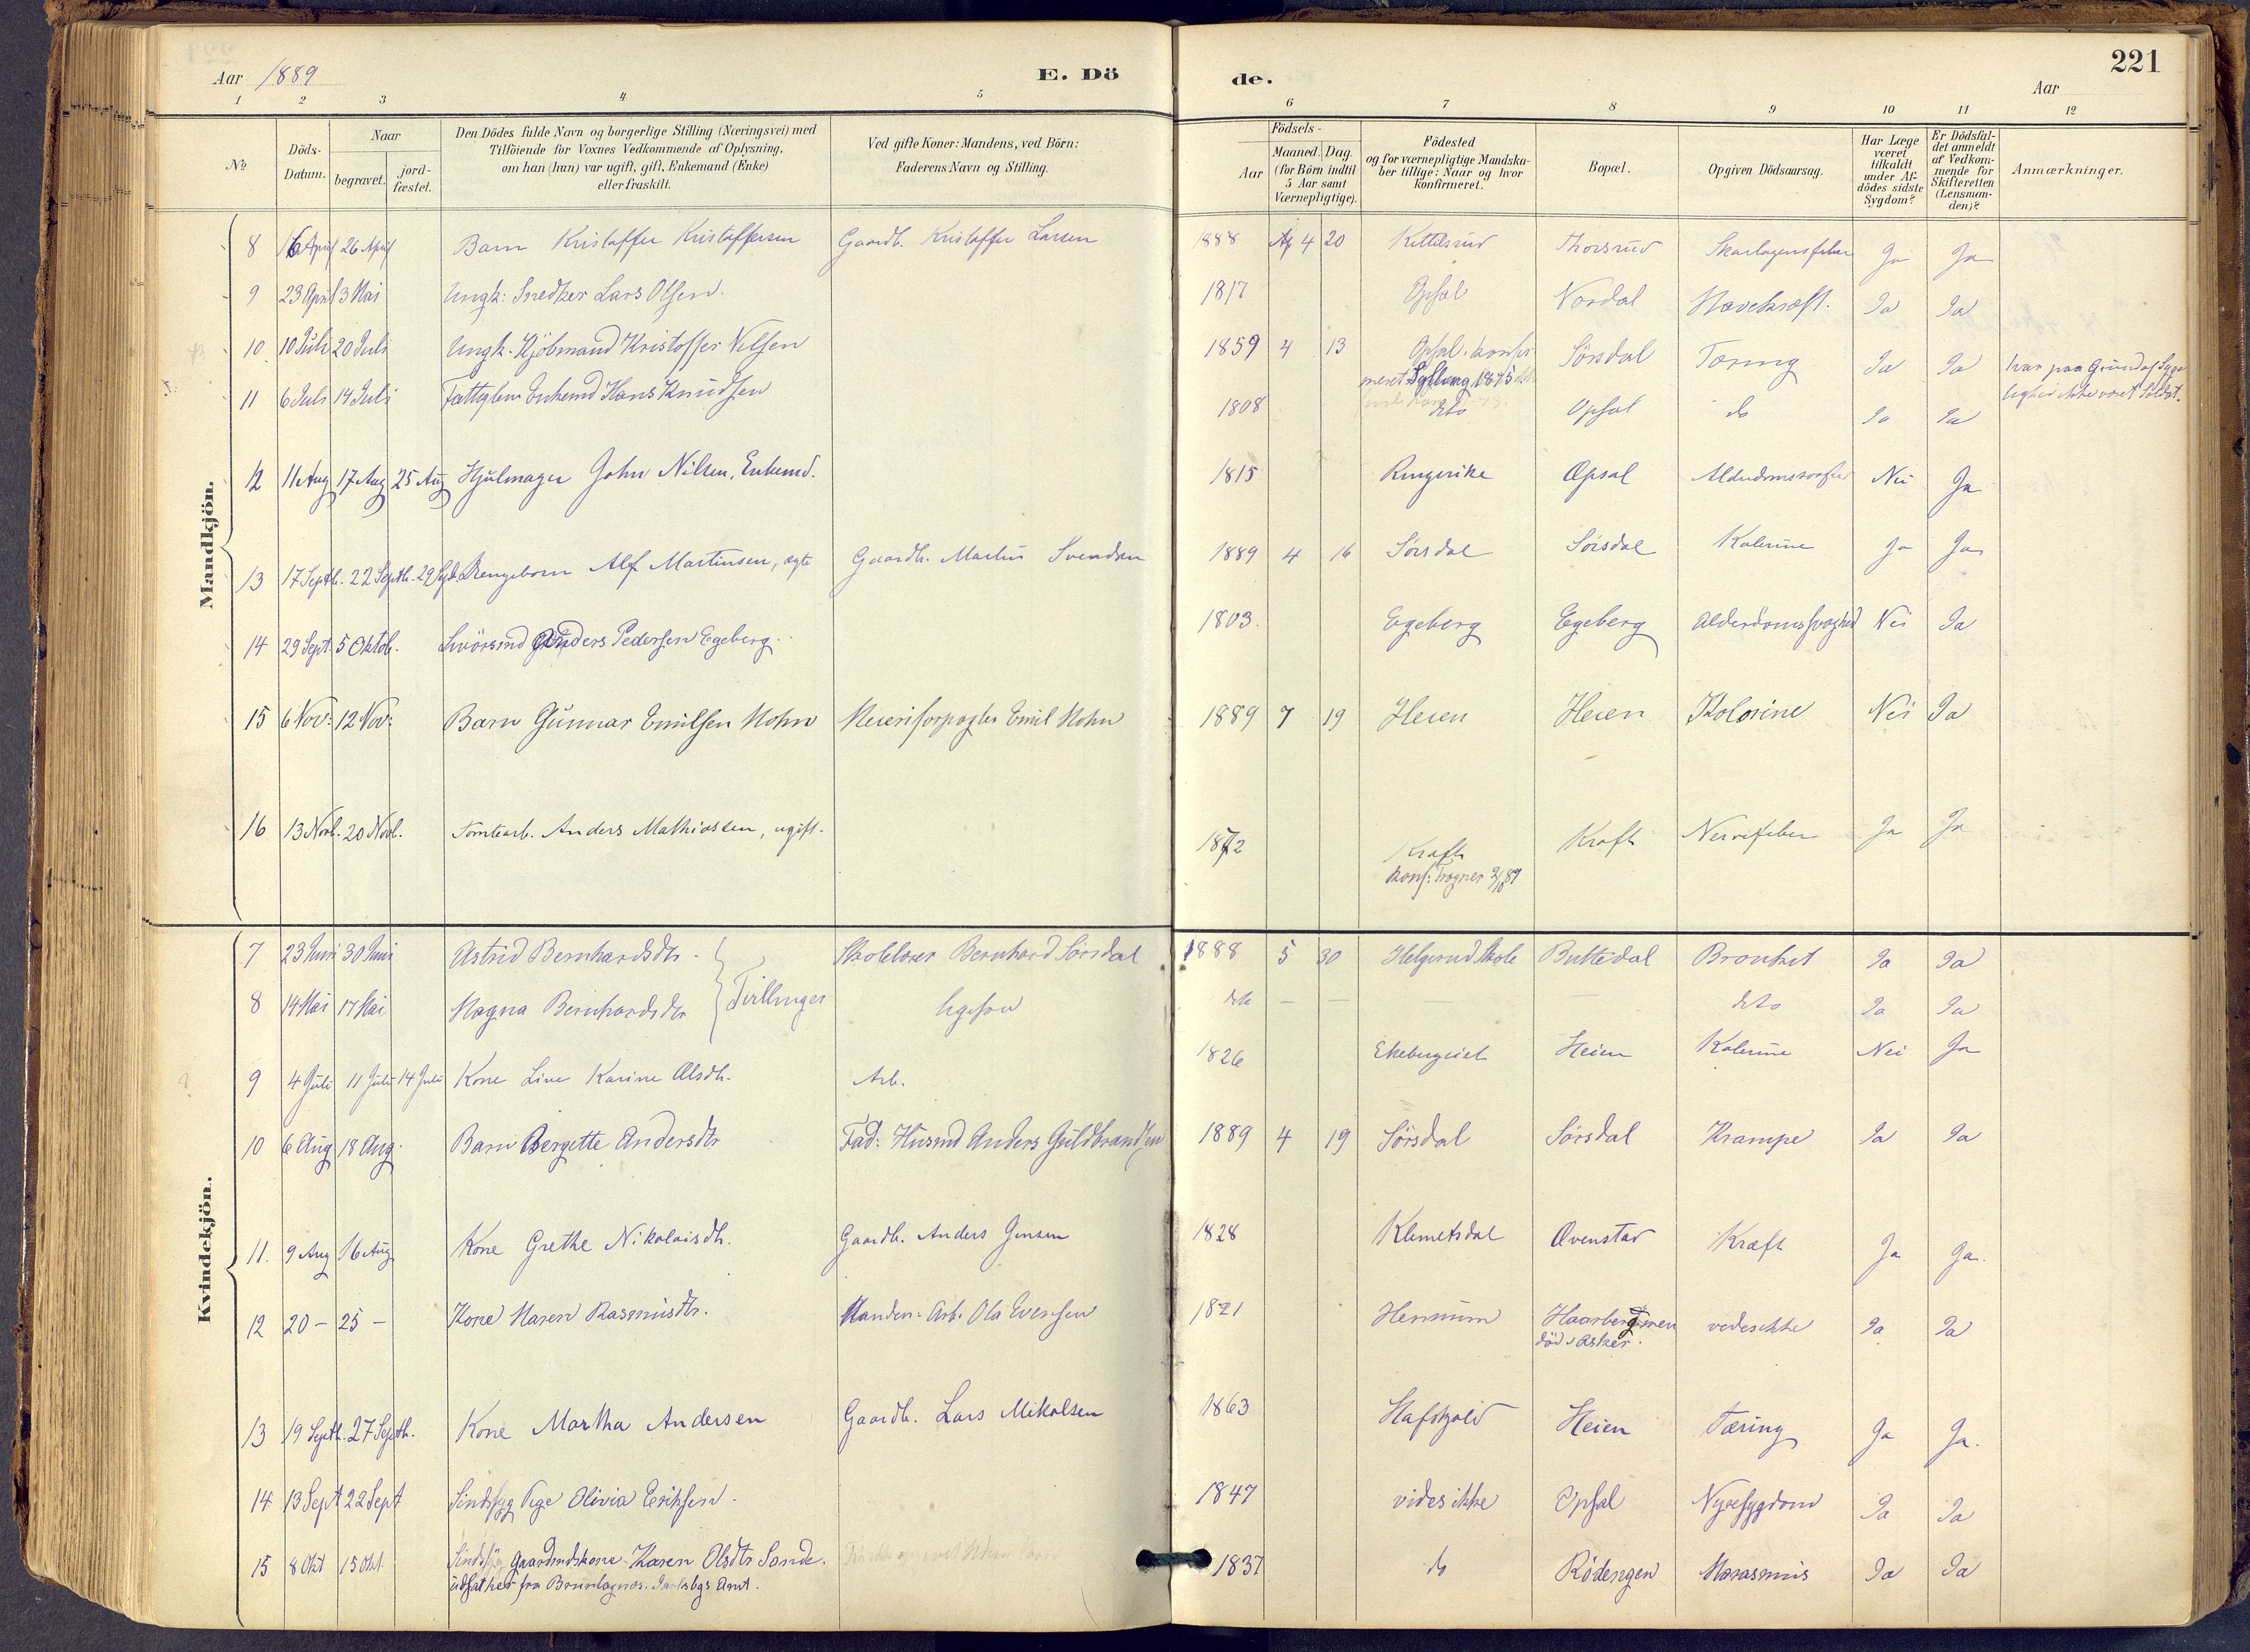 Aar 1889
E. Dö
de.
Aar
221
1 2 3 4 5 6 7 8 9 10 11 12
No
Döds-Datum.
Naar
begravet.
jord-fæstet.
Den Dödes fulde Navn og borgerlige Stilling (Næringsvei) med
Tilföiende for Voxnes Vedkommende af Oplysning,
om han (hun) var ugift, gift, Enkemand (Enke)
eller fraskilt.
Ved gifte Koner: Mandens, ved Börn:
Faderens Navn og Stilling.
Födsels-
Aar
Maaned. Dag.
(for Börn indtil
5 Aar samt
Værnepligtige).
Födested
og for værnepligtige Mandska-
ber tillige: Naar og hvor
konfirmeret.
Bopæl.
Opgiven Dödsaarsag.
Har Læge
været
tilkaldt
under Af-
dödes sidste
Sygdom?
Er Dödsfal-
det anmeldt
af Vedkom-
mende for
Skifteretten
(Lensman-
den)?
Anmærkninger.
Mandkjön.
8 16 April 26 April Barn Kristoffer Kristoffersen Gaardb. Kristoffer Larsen 1888 Ap 4 20 Kittilsrud Thorsrud Skarlagensfeber Ja Ja
9 23 April 3 Mai Ungk: Snedker Lars Olsen. 1817 Opsal Nordal Mavekræft. Ja Ja
10 10 Juli 20 Juli Ungk. Kjöbmand Kristoffer Nilsen 1859 4 13 Opsal. konfir
meret Sylling 1875 Sörsdal Tæring Ja Ja var paa Grund af Syge
lighed ikke været Soldat.
11 6 Juli 14 Juli Fattiglem Enkemd Hans Knudsen 1808 dto Opsal do Ja Ja
12 11 Aug 17 Aug 25 Aug Hjulmager John Nilsen, Enkemd. 1815 Ringerike Opsal Alderdomssvaghed Nei Ja
13 17 Septb. 22 Septb. 29 Septb. Drengebarn Alf Martinsen, ægte Gaardb. Martin Svendsen 1889 4 16 Sörsdal Sörsdal Kolerine Ja Ja
14 29 Sept. 5 Oktob. Anders Pedersen Egeberg. 1803. Egeberg Egeberg Alderdomssvaghed Nei Ja
15 6 Nov: 12 Nov: Barn Gunnar Emilsen Mohn Meieriforpagter Emil Mohn 1889 7 19 Heien Heien Kolorine Nei Ja
16 13 Novb. 20 Novb. Tomtearb. Anders Mathiassen, ugift. 1872 Kraft
Konf: Tragner Kraft Nervefeber Ja Ja
Kvindekjön.
7 23 Juni 30 Juni Astrid Bernhardsdtr. Skolelærer Bernhard Sörsdal 1888 5 30 Helgerud Skole Buttedal Bronkit Ja Ja
8 14 Mai 17 Mai Magna Bernhardsdtr Tvillinger ligesaa dto — — — dto Ja Ja
9 4 Juli 11 Juli 14 Juli Kone Live Karine Olsdtr. Arb. 1826 Ekebergeiet Heien Kolerine Nei Ja
10 6 Aug 18 Aug. Barn Bergette Andersdtr Fad: Husmd Anders Guldbrandsen 1889 4 19 Sörsdal Sörsdal Krampe Ja Ja
11. 9 Aug 16 Aug Kone Grethe Nikolaisdtr. Gaardb. Anders Jensen 1828 Klemetsdal Ovenstad Kræft Ja Ja.
12 20 — 25 — Kone Maren Rasmusdtr. Manden: Arb. Ola Evensen 1821 Hennum Haarberg men
död i Asker. vides ikke Ja Ja
13 19 Septb. 27 Septb. Kone Martha Andersen Gaardb. Lars Mikalsen 1863 Hafskjold Heien Tæring Ja Ja.
14 13 Sept 22 Sept Sindssyg Pige Olivia Eriksen. 1847 vides ikke Opsal Nyresygdom Ja Ja
15 8 Okt 15 Okt Sindssyg Gaardmdskone Karen Olsdtr Sande.
udsat her fra Brunlagnæs. Jarlsbgs Amt. 1837 do Rödengen Marasmus Ja Ja